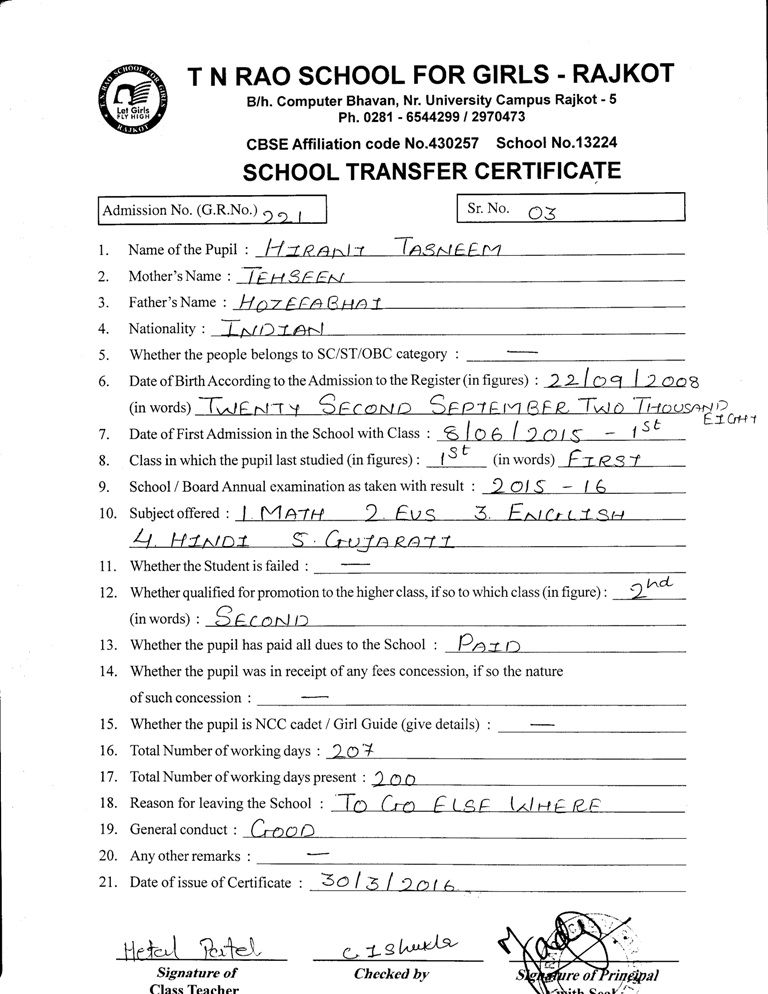 T. N. RAO SCHOOL FOR GIRLS
Let Girls
FLY HIGH
RAJKOT
T N RAO SCHOOL FOR GIRLS - RAJKOT
B/h. Computer Bhavan, Nr. University Campus Rajkot - 5
Ph. 0281 - 6544299 / 2970473
CBSE Affiliation code No.430257 School No.13224
SCHOOL TRANSFER CERTIFICATE
Admission No. (G.R.No.) 221 Sr. No. 03
1. Name of the Pupil : HIRANI TASNEEM
2. Mother's Name : TEHSEEN
3. Father's Name : HOZEFABHAI
4. Nationality : INDIAN
5. Whether the people belongs to SC/ST/OBC category : —
6. Date of Birth According to the Admission to the Register (in figures) : 22/09/2008
(in words) TWENTY SECOND SEPTEMBER TWO THOUSAND EIGHT
7. Date of First Admission in the School with Class : 8/06/2015 - 1st
8. Class in which the pupil last studied (in figures) : 1st (in words) FIRST
9. School / Board Annual examination as taken with result : 2015 - 16
10. Subject offered : 1. MATH 2. EVS 3. ENGLISH
4. HINDI 5. GUJARATI
11. Whether the Student is failed : —
12. Whether qualified for promotion to the higher class, if so to which class (in figure) : 2nd
(in words) : SECOND
13. Whether the pupil has paid all dues to the School : PAID
14. Whether the pupil was in receipt of any fees concession, if so the nature
of such concession : —
15. Whether the pupil is NCC cadet / Girl Guide (give details) : —
16. Total Number of working days : 207
17. Total Number of working days present : 200
18. Reason for leaving the School : TO GO ELSE WHERE
19. General conduct : GOOD
20. Any other remarks : —
21. Date of issue of Certificate : 30/3/2016
Hetal Patel C I Shukla
Signature of Checked by Signature of Principal
Class Teacher (with Seal)